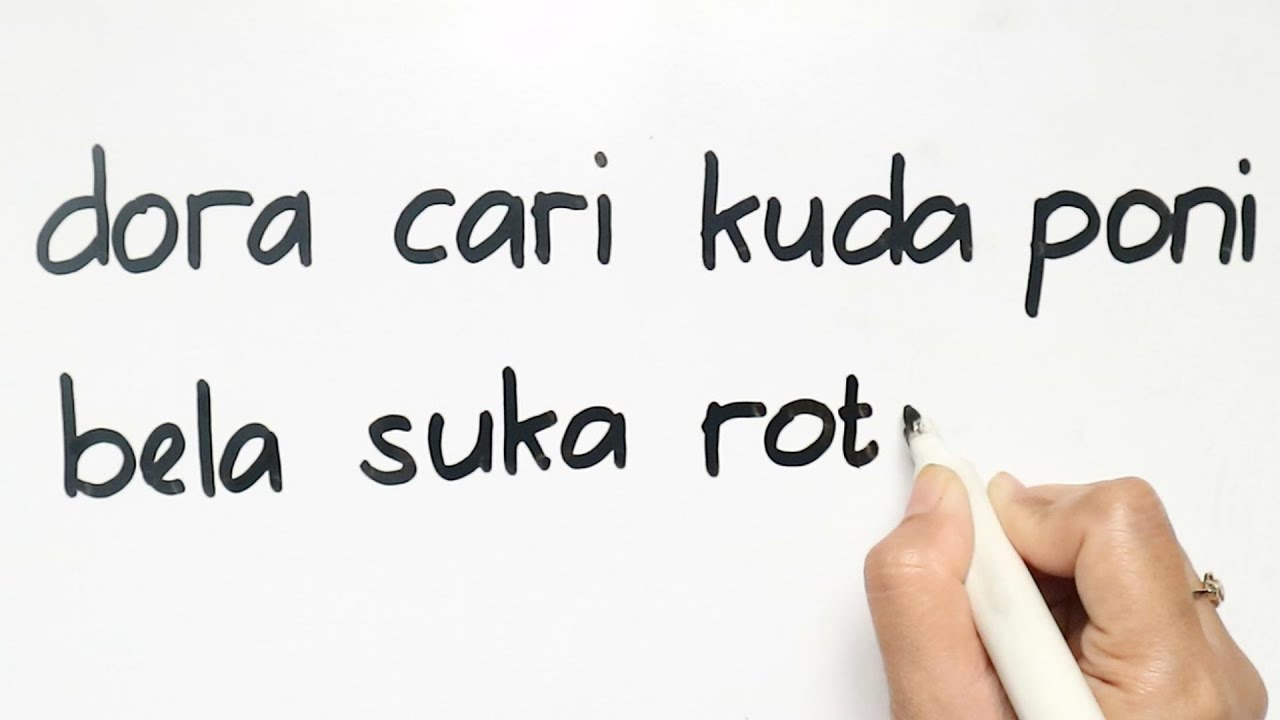 dora cari kuda poni
bela suka rot